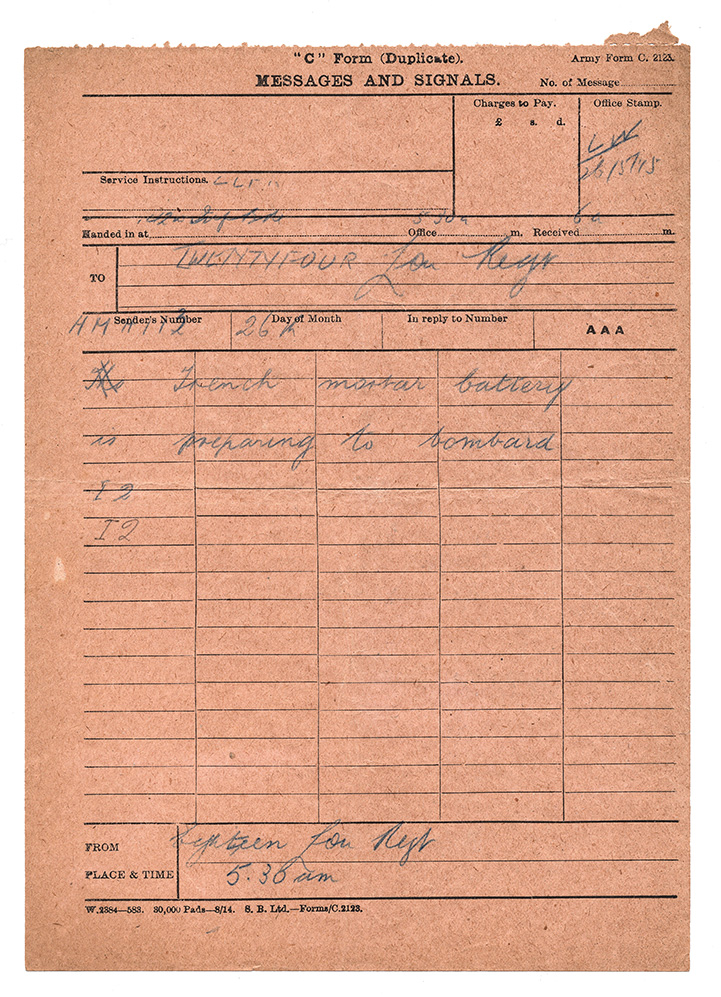 "C" Form (Duplicate). Army Form C. 2123.
MESSAGES AND SIGNALS. No. of Message
Charges to Pay. Office Stamp.
£ s. d.
26/5/15
Service Instructions.
5 30a 6a
Handed in at Office m. Received m.
TO TWENTYFOUR Lon Regt
Sender's Number Day of Month In reply to Number AAA
26th
Trench mortar battery
is preparing to bombard
I 2
I 2
FROM Eighteen Lon Regt
PLACE & TIME 5.30 am
W.2384—583. 30,000 Pads—8/14. S. B. Ltd.—Forms/C.2123.